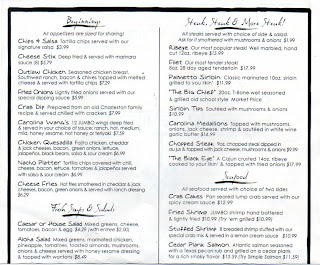 Beginnings
All appetizers are sized for sharing!
Chips & Salsa Tortilla chips served with our
signature salsa $3.99
Cheese Stix Deep fried & served with marinara
sauce (8) $5.79
Outlaw Chicken Seasoned chicken breast,
Southwest ranch, bacon & onions topped with melted
cheese & served with tortilla chips $7.29
Fried Onions Lightly fried onions served with our
special dipping sauce $5.99
Crab Dip Prepared from an old Charleston family
recipe & served chilled with crackers $7.99
Carolina Wings 12 JUMBO wings deep fried &
served in your choice of sauce: ranch, hot, medium,
mild, honey wasabi, hot honey or teriyaki $7.59
Chicken Quesadilla Fajita chicken, cheddar
& jack cheeses, bacon, green onions, lettuce,
jalapeños, black beans, salsa & sour cream
Nacho Platter Tortilla chips covered with chili,
cheese, bacon, lettuce, tomatoes & jalapeños served
with salsa & sour cream $6.99
Cheese Fries Hot fries smothered in cheddar & jack
cheeses, bacon, green onions & served with ranch dressing
$6.29
Fresh Soups & Salads
Caesar or House Salad Mixed greens, cheese,
tomatoes, bacon & egg $4.29 (with entree $2.00)
Aloha Salad Mixed greens, marinated chicken,
pineapple, tomatoes, toasted almonds, mushrooms,
onions & cheese served with honey sesame dressing
& topped with wontons $8.49
Steak, Steak & More Steak!
All steaks served with choice of side & salad.
Ask for it smothered with mushrooms & $1.99
Ribeye Our most popular steak! Well marbled, hand
cut 12oz. ribeye $13.99
Filet Our most tender steak!
8oz. 28 day aged tenderloin $17.99
Palmetto Sirloin Classic marinated 10oz. sirloin
grilled to you likin' $11.99
"The Big Chief" 20oz. T-Bone well seasoned
& grilled old school style Market Price
Sirloin Tips Smothered with mushrooms & onions
$10.99
Carolina Medallions Topped with mushrooms,
onions, jack cheese, shrimp & sautéed in white wine
garlic butter $14.99
Chopped Steak 9oz. chopped steak dipped in
au jus & topped with jack cheese, mushrooms & onions $9.99
"The Black Eye" A Cajun crusted 14oz. ribeye
cooked to your likin' & topped with fried onions $17.99
Seafood
All seafood served with choice of two sides
Crab Cakes Pan seared lump crab served with our
spicy cream sauce $12.99
Fried Shrimp JUMBO shrimp hand battered
& lightly fried $10.99 (Try 'em grilled $10.99)
Stuffed Shrimp 8 breaded shrimp stuffed with our
special crab mix & served in a lemon cream sauce $10.99
Cedar Plank Salmon Atlantic salmon seasoned
with a Texas pecan rub and grilled on a cedar plank
for a rich smoky flavor $13.59 (Try Simple Salmon $11.59)